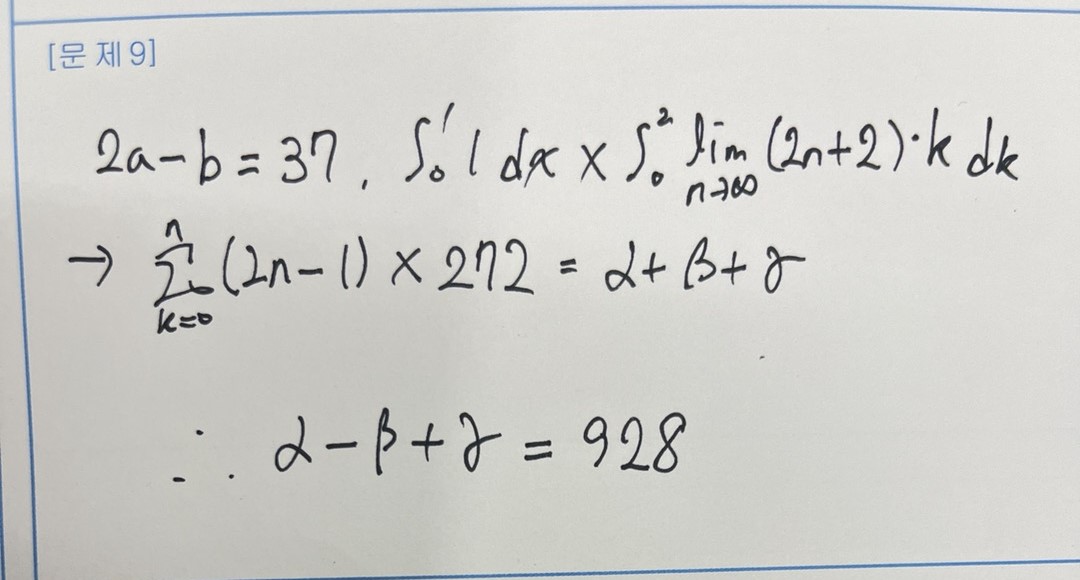 [문 제 9]
2a-b=37, ∫₀¹ 1 dx × ∫₀² lim_{n→∞} (2n+2)·k dk
→ ∑_{k=0}^{n} (2n-1) × 272 = α+β+γ
∴ α-β+γ = 928